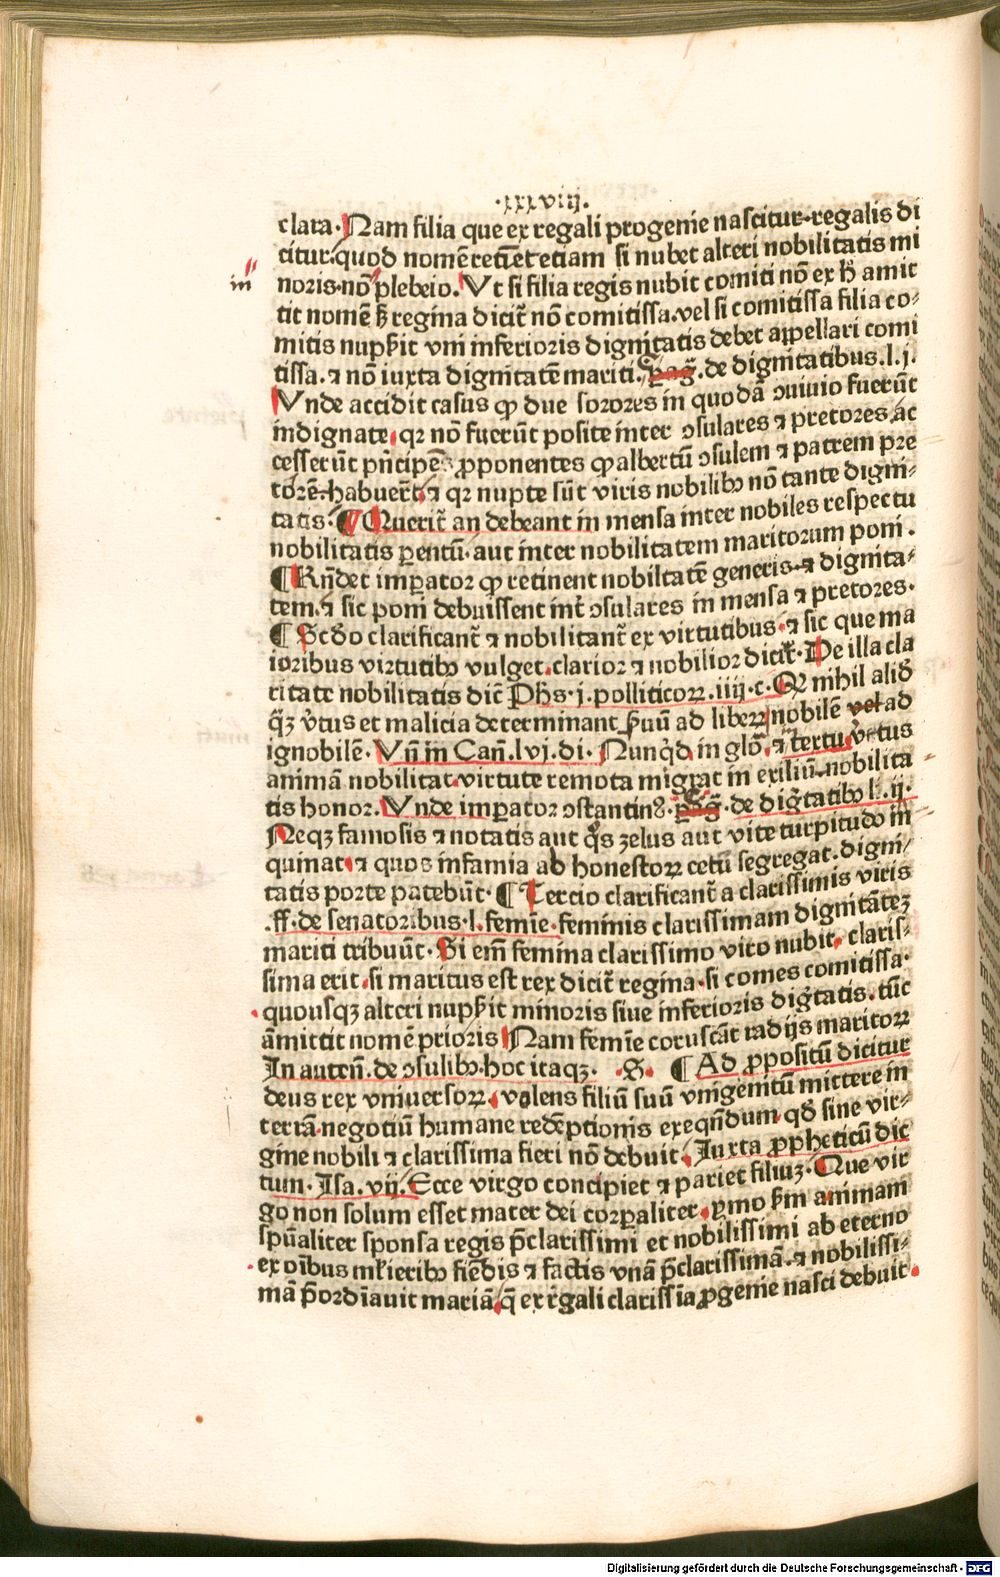 .xxxviij.
clara. Nam filia que ex regali progenie nascitur. regalis di
citur. quod nomē retinet etiam si nubet alteri nobilitatis mi
in
noris. nō plebeio. Vt si filia regis nubit comiti nō ex hͦ amit
tit nomē sꝫ regina dicit̄ nō comitissa. vel si comitissa filia co-
mitis nupserit vni inferioris dignitatis debet appellari comi
tissa. ⁊ nō iuxta dignitatē mariti. de dignitatibus. l. j.
Vnde accidit casus ꝙ due sorores in quodā ꝯuiuio fuerūt
indignate, qꝛ nō fuerūt posite inter ꝯsulares ⁊ pretores, ac
cesserūt pn̄cipē ꝓponentes ꝙ albertū ꝯsulem ⁊ patrem pre
torē habuerūt, ⁊ qꝛ nupte sūt viris nobilibꝰ nō tante digni-
tatis. ¶ Querit̄ an debeant in mensa inter nobiles respectu
nobilitatis ꝑentū. aut inter nobilitatem maritorum poni.
¶ Rn̄det imꝑator ꝙ retinent nobiltatē generis. ⁊ dignita-
tem. ⁊ sic poni debuissent int̄ ꝯsulares in mensa ⁊ pretores.
¶ Scd̄o clarificant̄ ⁊ nobilitant̄ ex virtutibus. ⁊ sic que ma
ioribus virtutibꝰ vulget. clarior ⁊ nobilior dicit̄. De illa cla
ritate nobilitatis dic̄ Ph̄s. j. polliticoꝝ. iiij. c. Qꝛ nihil aliđ
q̄ꝫ v̓tus et malicia determinant ẜuū ad libeꝝ nobilē vel ad
ignobilē. Vn̄ in Can̄. lvj. di. Nunq̇d in glo. ⁊ tertu v̓tus
animā nobilitat. virtute remota migrat in exiliū. nobilita
tis honor. Vnde imꝑator ꝯstantinꝰ. de dign̄tatibꝰ l. ij.
Neqꝫ famosis ⁊ notatis aut q̇s zelus aut vite turpitudo in
quinat, ⁊ quos infamia ab honestoꝝ cetū segregat. digni/
tatis porte patebūt. ¶ Tercio clarificant̄ a clarissimis viris
.ff. de senatoribus. l. femīe. feminis clarissimam dignitātez
mariti tribuūt. Si em̄ femina clarissimo viro nubit, claris-
sima erit. si maritus est rex dicit̄ regina. si comes comitissa.
quousqꝫ alteri nupserit minoris siue inferioris dign̄tatis. tūc
āmittit nomē prioris. Nam femīe coruscāt radijs maritoꝝ
In auten̄. de ꝯsulibꝰ. hoc itaqꝫ. .S. ¶ Ad ꝓpositū dicitur
deus rex vniuersoꝝ. volens filiū suū vnigenitū mittere in
terrā. negotiū humane redēptionis exeqn̄dum. qđ sine vir-
gine nobili ⁊ clarissima fieri nō debuit. Iuxta ꝓpheticū dic
tum. Isa. vij. Ecce virgo concipiet ⁊ pariet filiuꝫ. Que vir
go non solum esset mater dei corꝑaliter, p̓mo ẜm animam
spūaliter sponsa regis p̄clarissimi et nobilissimi ab eterno
ex oībus ml̓ieribꝰ fiēdis ⁊ factis vnā p̄clarissimā. ⁊ nobilissi-
mā p̄ordīauit mariā, q̄ ex rēgali clarissīa ꝓgenie nasci debuit.
Digitalisierung gefördert durch die Deutsche Forschungsgemeinschaft - DFG